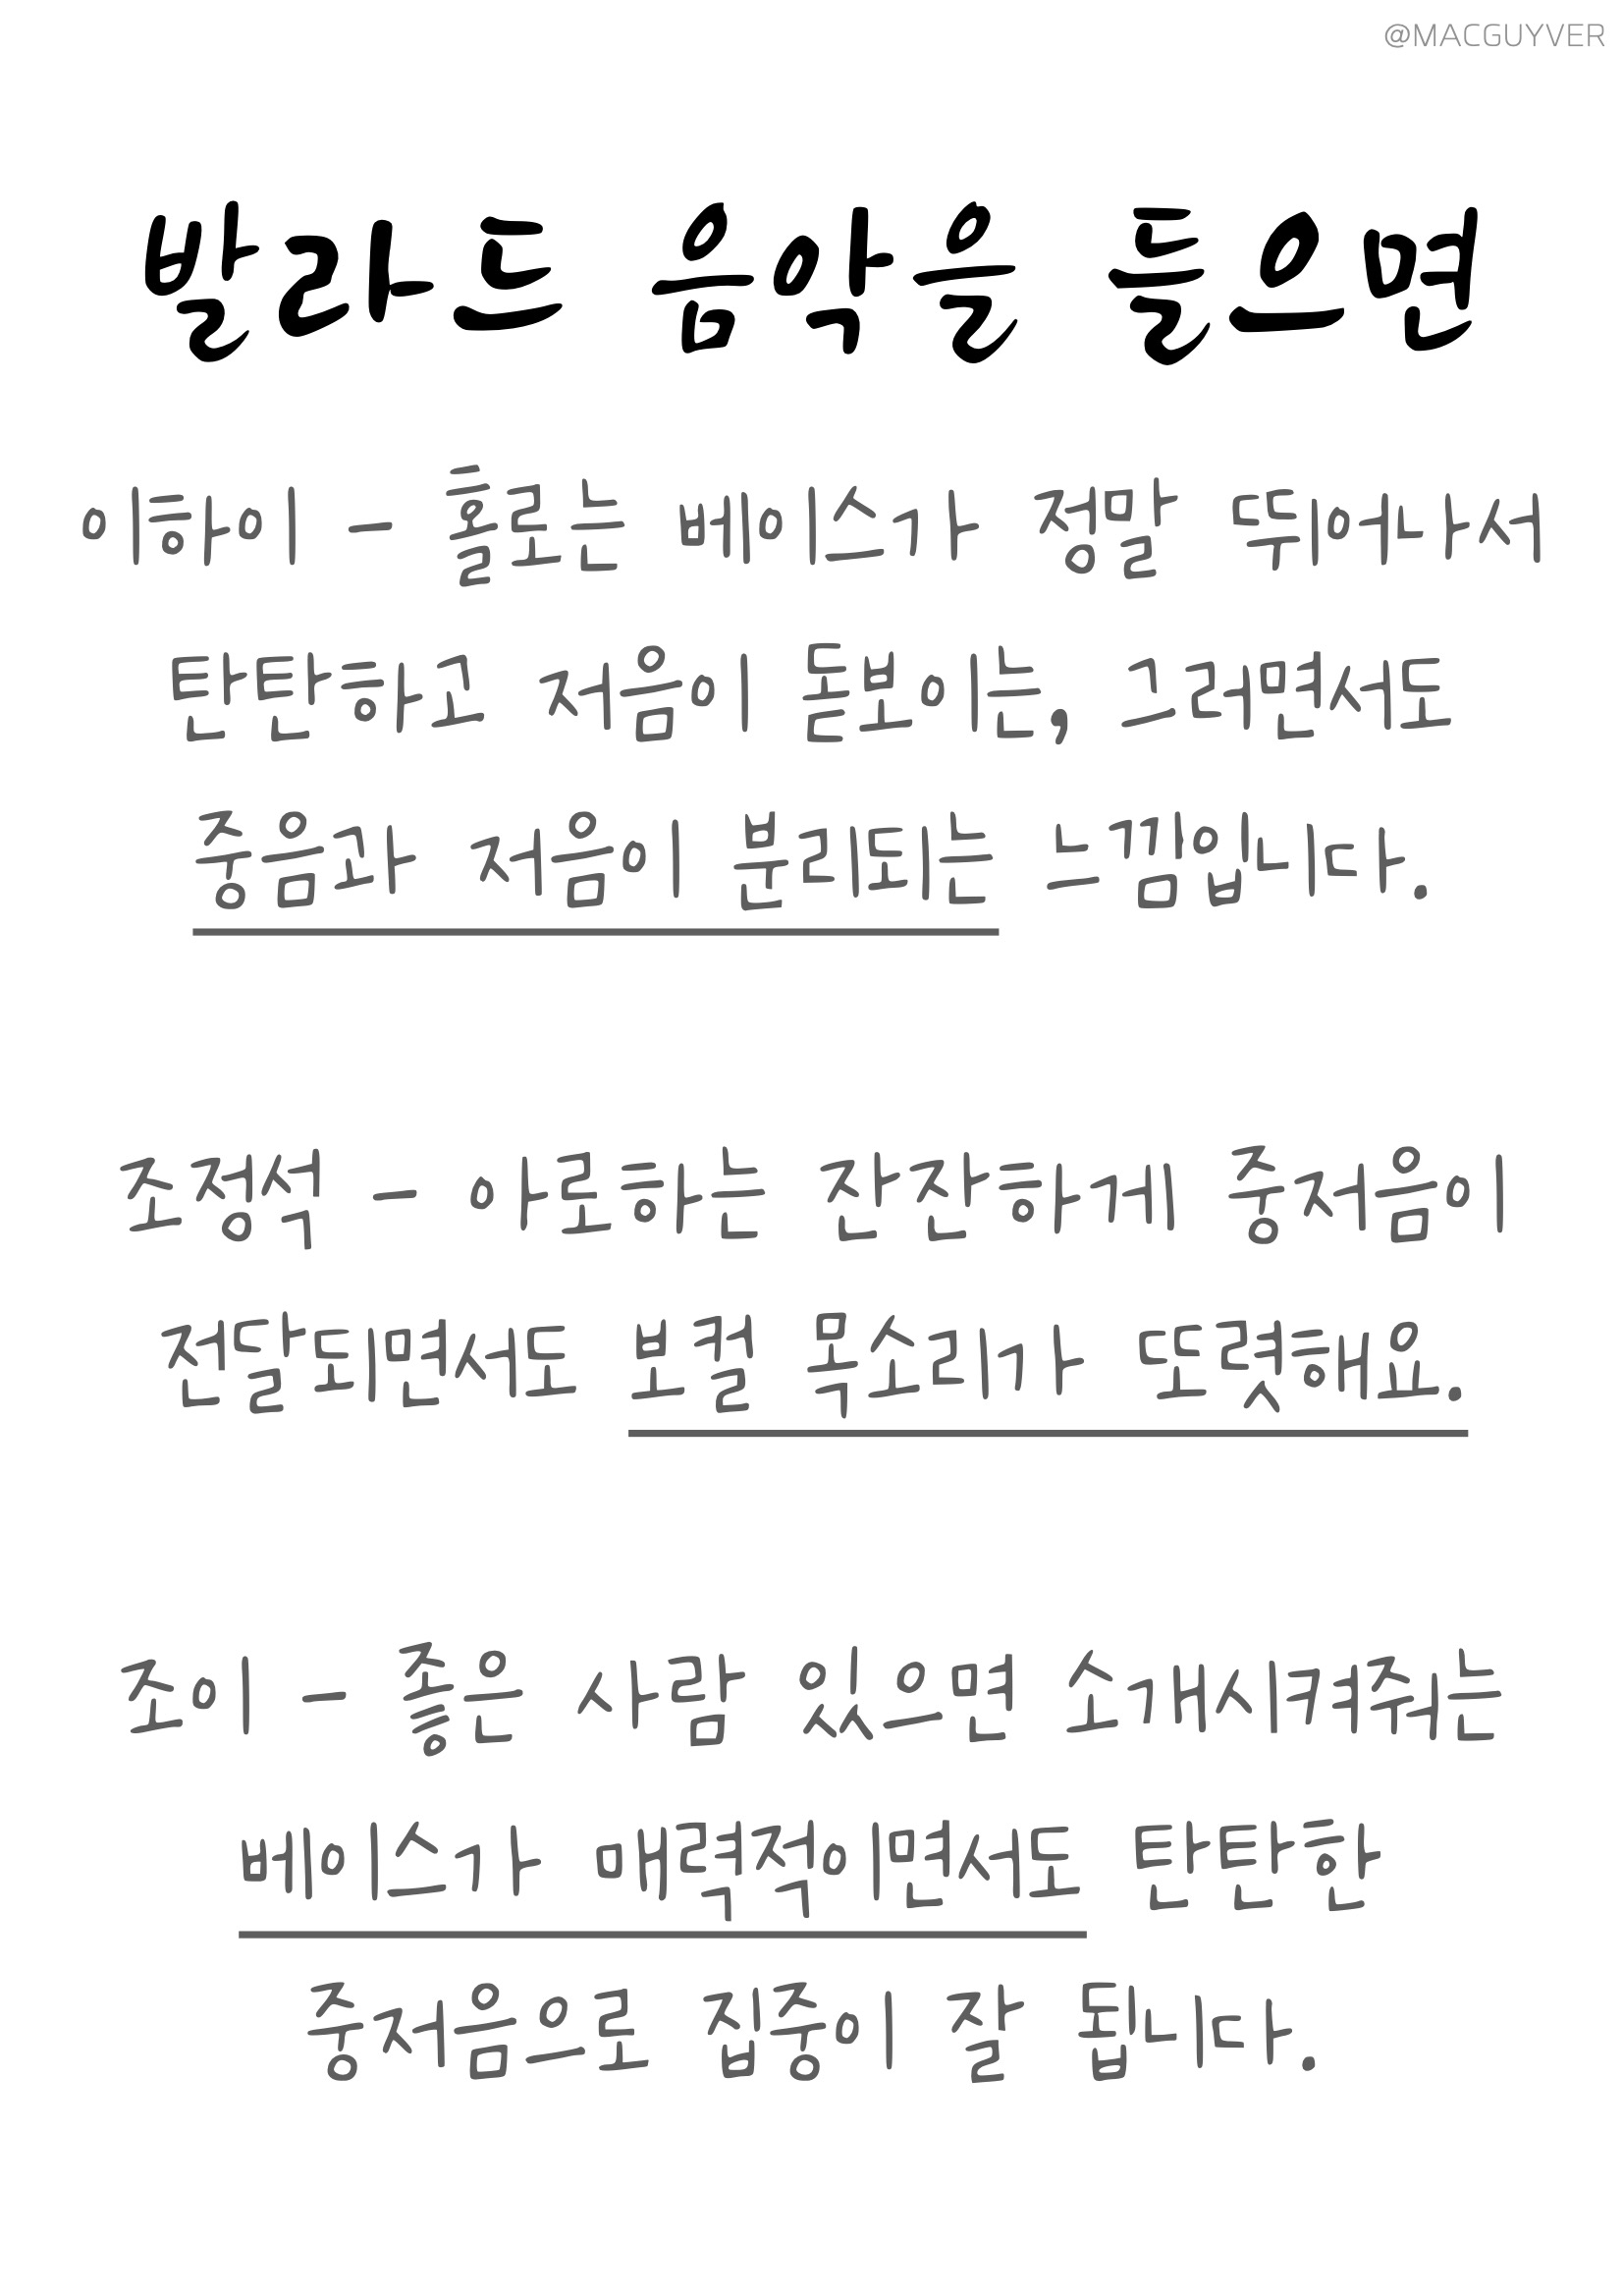 @MACGUYVER
발라드 음악을 들으면
이하이 - 홀로는 베이스가 정말 뛰어나서
탄탄하고 저음이 돋보이는, 그러면서도
중음과 저음이 분리되는 느낌입니다.
조정석 - 아로하는 잔잔하게 중저음이
전달되면서도 보컬 목소리가 또렷해요.
조이 - 좋은 사람 있으면 소개시켜줘는
베이스가 매력적이면서도 탄탄한
중저음으로 집중이 잘 됩니다.